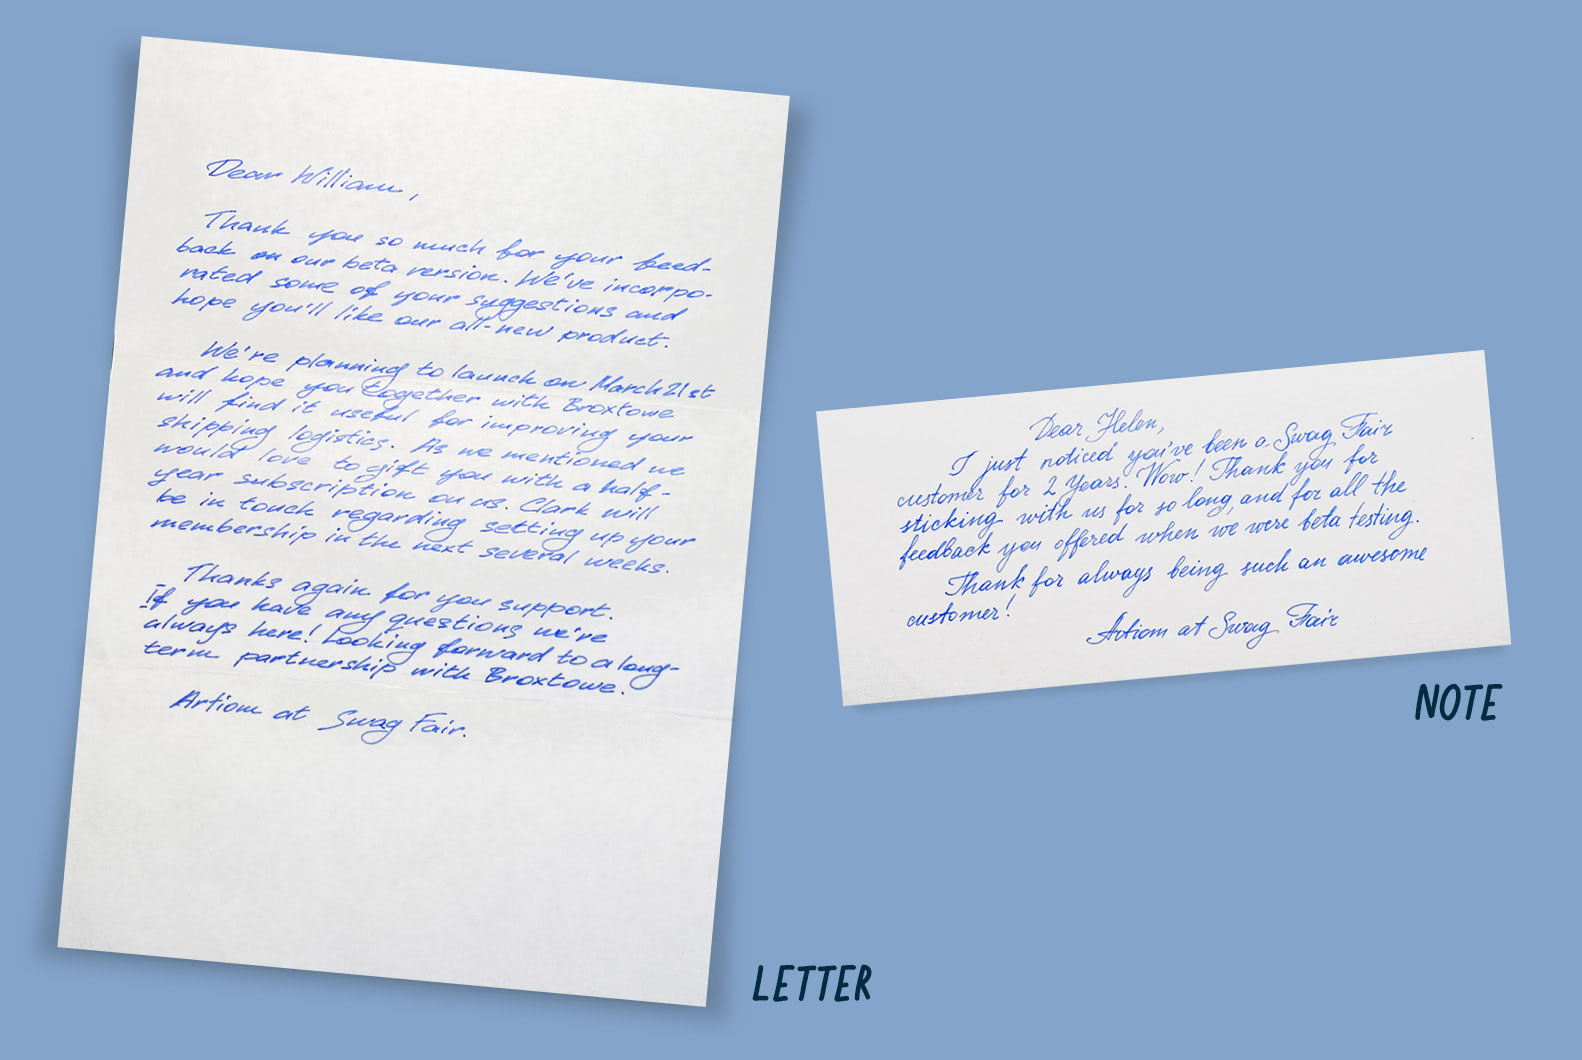 Dear William,
Thank you so much for your feed-
back on our beta version. We've incorpo-
rated some of your suggestions and
hope you'll like our all-new product.
We're planning to launch on March 21st
and hope you together with Broxtowe
will find it useful for improving your
shipping logistics. As we mentioned we
would love to gift you with a half-
year subscription on us. Clark will
be in touch regarding setting up your
membership in the next several weeks.
Thanks again for you support.
If you have any questions we're
always here! Looking forward to a long-
term partnership with Broxtowe.
Artiom at Swag Fair.
LETTER
Dear Helen,
I just noticed you've been a Swag Fair
customer for 2 Years. Wow! Thank you for
sticking with us for so long, and for all the
feedback you offered when we were beta testing.
Thank for always being such an awesome
customer!
Artiom at Swag Fair
NOTE